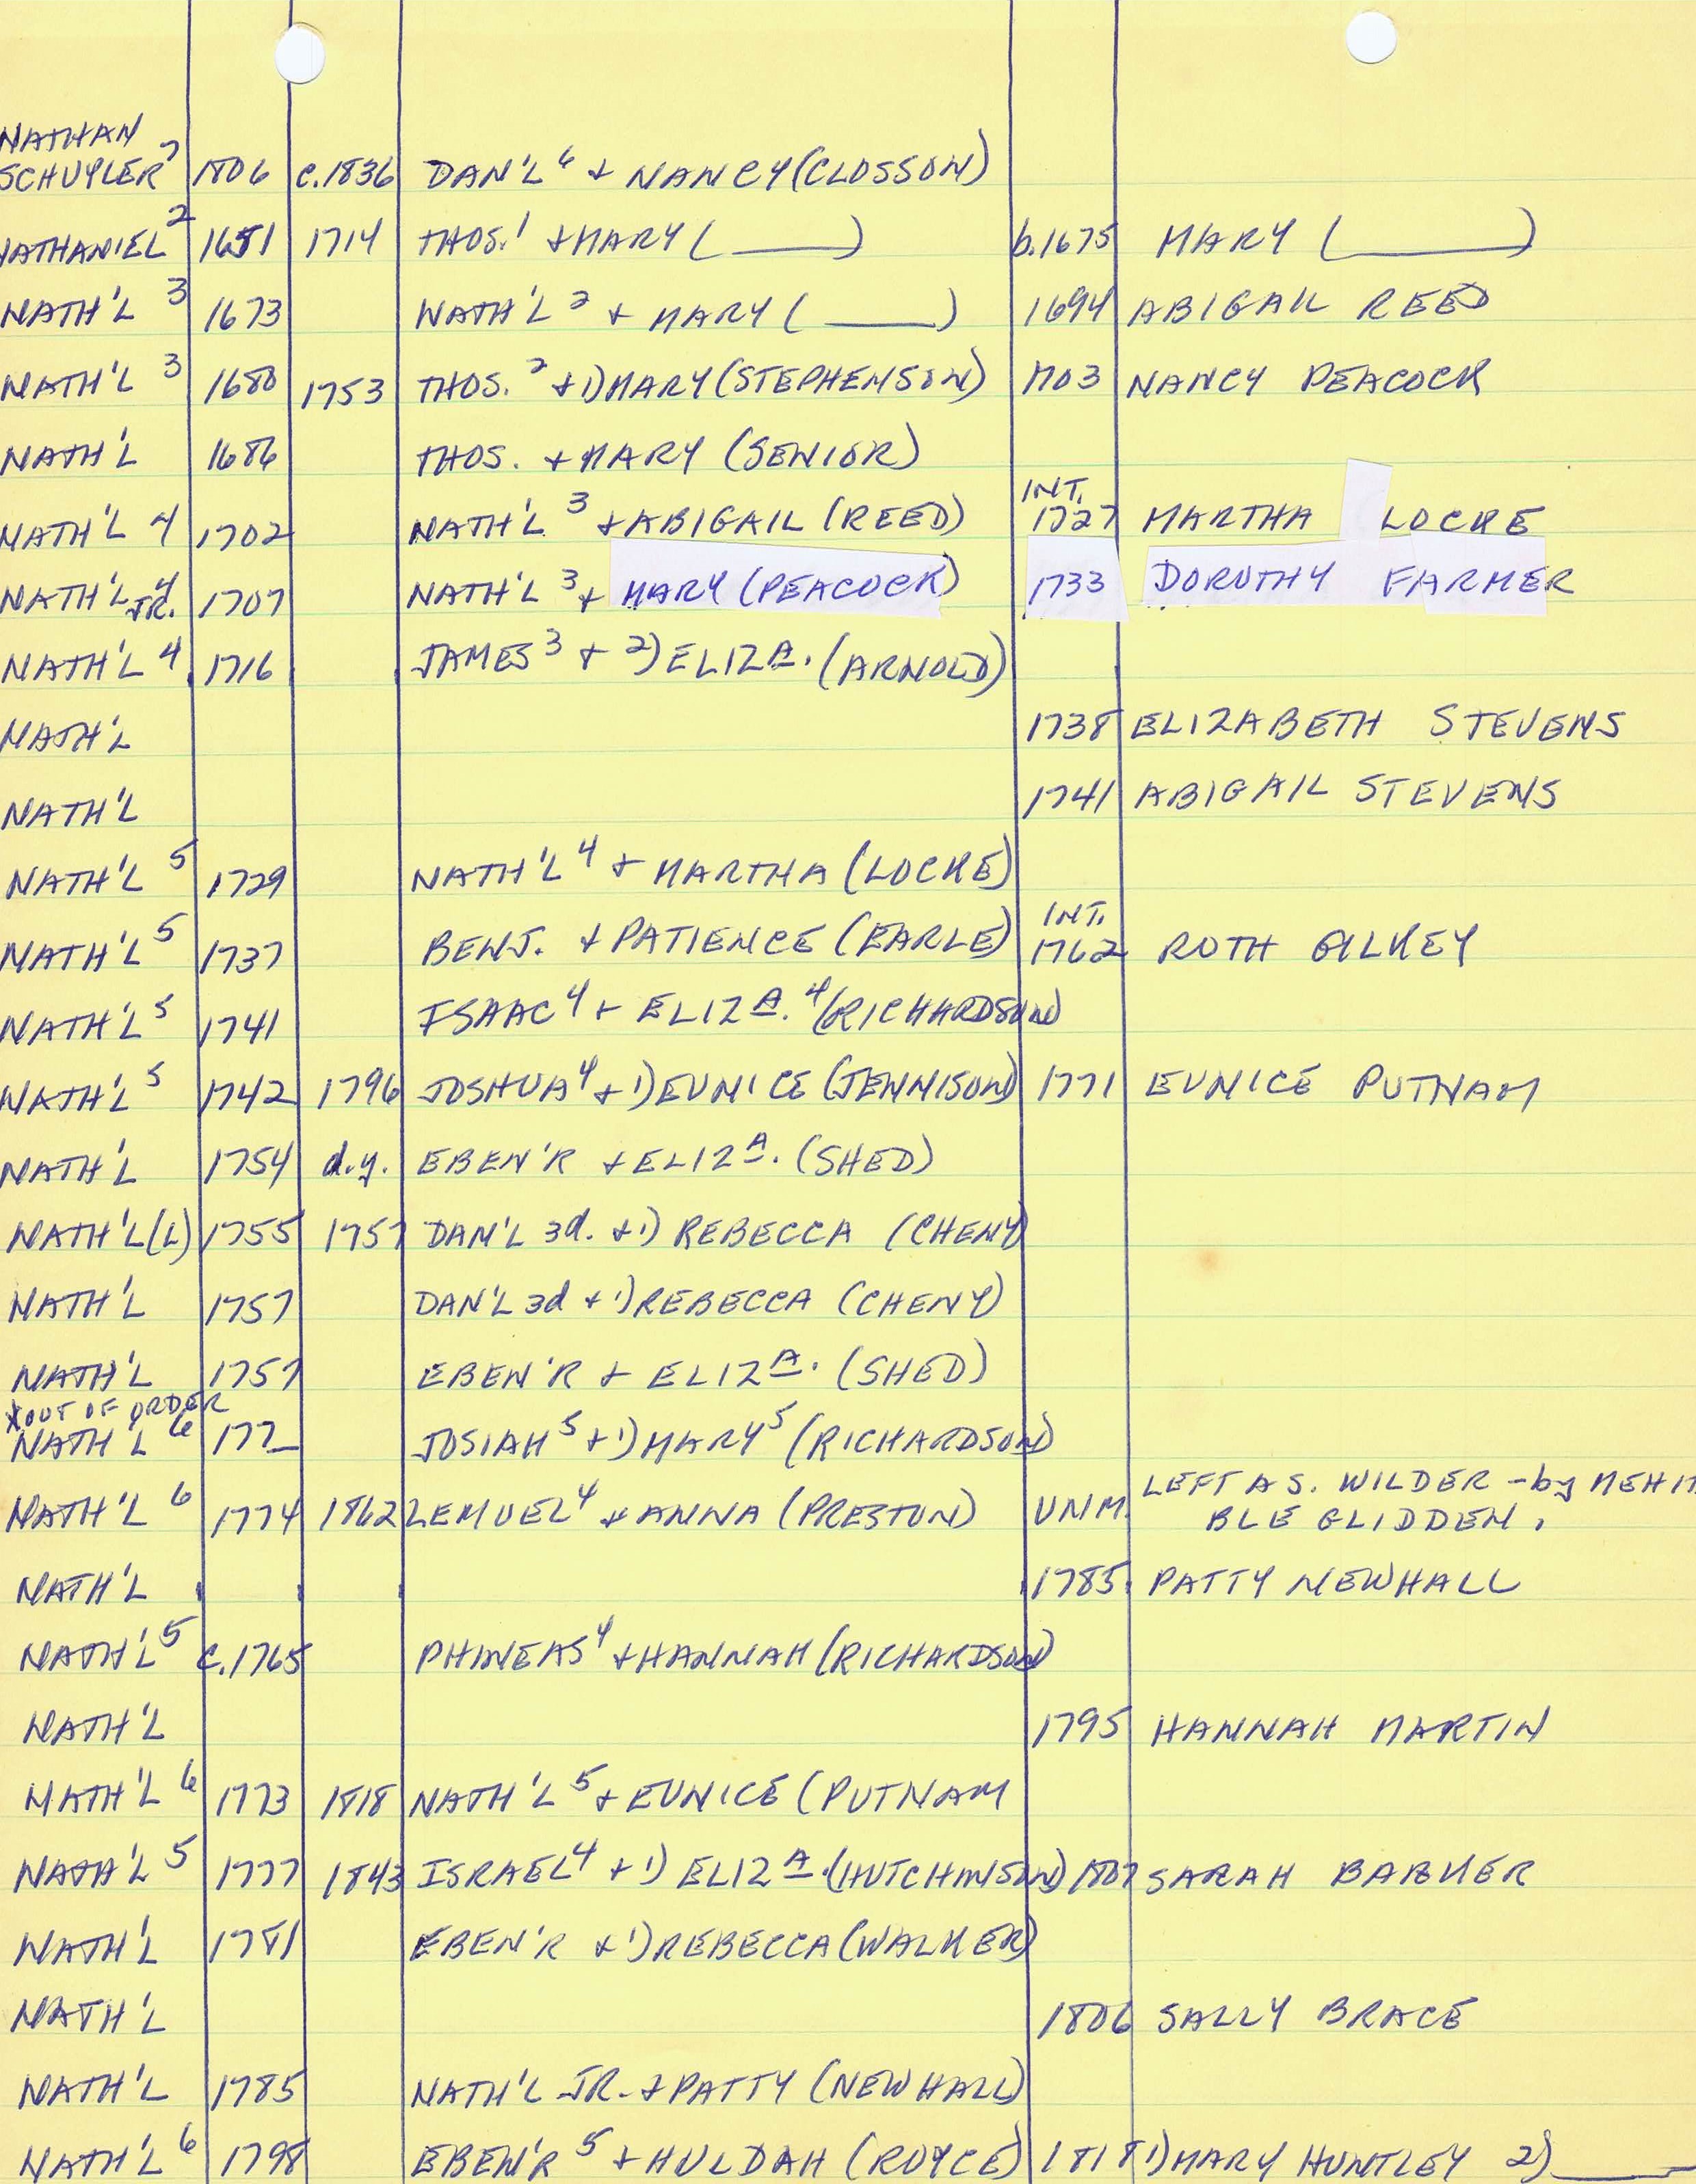 NATHAN
SCHUYLER 7 1806 c.1836 DAN'L 6 + NANCY (CLOSSON)
NATHANIEL 2 1651 1714 THOS. 1 + MARY ( ____ ) b.1675 MARY ( ____ )
NATH'L 3 1673 NATH'L 2 + MARY ( ____ ) 1694 ABIGAIL REED
NATH'L 3 1680 1753 THOS. 2 + 1) MARY (STEPHENSON) 1703 NANCY PEACOCK
NATH'L 1686 THOS. + MARY (SENIOR)
INT.
NATH'L 4 1702 NATH'L 3 + ABIGAIL (REED) 1727 MARTHA LOCKE
NATH'L JR. 4 1707 NATH'L 3 + MARY (PEACOCK) 1733 DOROTHY FARMER
NATH'L 4 1716 JAMES 3 + 2) ELIZA. (ARNOLD)
NATH'L 1738 ELIZABETH STEVENS
NATH'L 1741 ABIGAIL STEVENS
NATH'L 5 1729 NATH'L 4 + MARTHA (LOCKE)
INT.
NATH'L 5 1737 BENJ. + PATIENCE (EARLE) 1762 RUTH GILKEY
NATH'L 5 1741 ISAAC 4 + ELIZA. 4 (RICHARDSON)
NATH'L 5 1742 1796 JOSHUA 4 + 1) EUNICE (JENNISON) 1771 EUNICE PUTNAM
NATH'L 1754 d.y. EBEN'R + ELIZA. (SHED)
NATH'L(L) 1755 1757 DAN'L 3d. + 1) REBECCA (CHENY)
NATH'L 1757 DAN'L 3d + 1) REBECCA (CHENY)
NATH'L 1757 EBEN'R + ELIZA. (SHED)
*OUT OF ORDER
NATH'L 6 177_ JOSIAH 5 + 1) MARY 5 (RICHARDSON)
LEFT A S. WILDER - by MEHIT
NATH'L 6 1774 1862 LEMUEL 4 + ANNA (PRESTON) UNM. BLE GLIDDEN.
NATH'L 1785 PATTY NEWHALL
NATH'L 5 c.1765 PHINEAS 4 + HANNAH (RICHARDSON)
NATH'L 1795 HANNAH MARTIN
NATH'L 6 1773 1818 NATH'L 5 + EUNICE (PUTNAM
NATH'L 5 1777 1843 ISRAEL 4 + 1) ELIZA. (HUTCHINSON) 1807 SARAH BARKER
NATH'L 1781 EBEN'R + 1) REBECCA (WALKER)
NATH'L 1806 SALLY BRACE
NATH'L 1785 NATH'L JR. + PATTY (NEWHALL)
NATH'L 6 1798 EBEN'R 5 + HULDAH (ROYCE) 1818 1) MARY HUNTLEY 2) ____